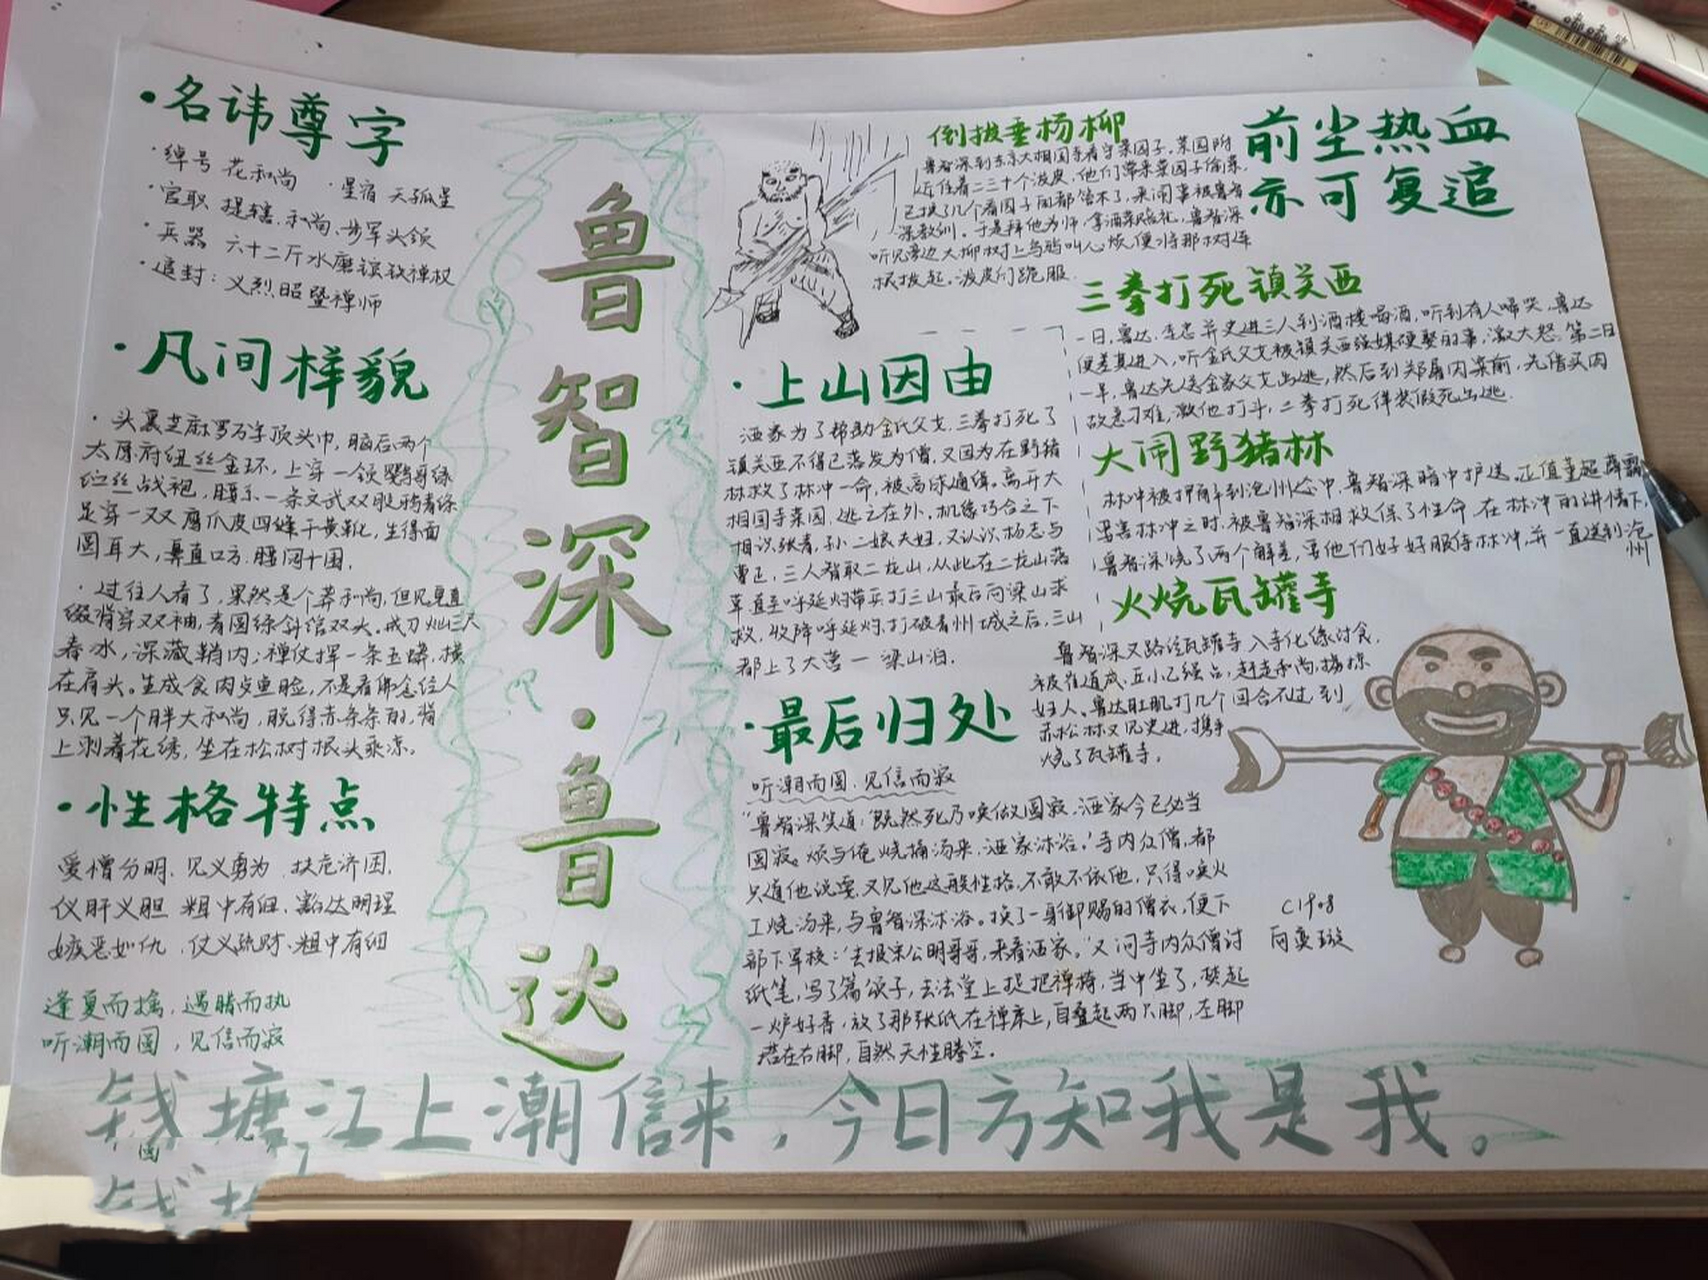 ·名讳尊字
·绰号 花和尚 ·星宿 天孤星
·官职 提辖.和尚.步军头领
·兵器 六十二斤水磨镔铁禅杖
·追封：义烈昭暨禅师
·凡间样貌
·头裹芝麻罗万字顶头巾，脑后两个
太原府纽丝金环，上穿一领鹦哥绿
纻丝战袍，腰系一条文武双股鸦青绦
足穿一双鹰爪皮四缝干黄靴，生得面
圆耳大，鼻直口方.腰阔十围.
·过往人看了，果然是个莽和尚，但见皂直
裰背穿双袖，青圆绦斜绾双头。戒刀灿三尺
春冰，深藏鞘内；禅仗挥一条玉蟒，横
在肩头。生成食肉 鱼脸，不是看佛念经人
只见一个胖大和尚，脱得赤条条的，背
上刺着花绣，坐在松树根头乘凉。
·性格特点
爱憎分明.见义勇为 扶危济困.
仗肝义胆 粗中有细.豁达明理
嫉恶如仇 仗义疏财.粗中有细
逢夏而擒，遇腊而执
听潮而圆，见信而寂
鲁智深·鲁达
倒拔垂杨柳
鲁智深到东京大相国寺看守菜园子.菜园附
近住着二三十个泼皮，他们常来菜园子偷菜，
已换了几个看园子的都管不了，来闹事被鲁智
深教训.于是拜他为师，拿酒菜赔礼，鲁智深
听见旁边大柳树上乌鸦叫心烦，便将那树连
根拔起.泼皮们跪服.
前尘热血
亦可复追
三拳打死镇关西
一日，鲁达.李忠并史进三人到酒楼喝酒，听到有人啼哭.鲁达
便差其进入，听金氏父女被镇关西强媒硬娶的事，激大怒.第二日
一早，鲁达先送金家父女出逃，然后到郑屠肉案前，先借买肉
故意刁难，激他打斗，三拳打死佯装假死出逃.
·上山因由
洒家为了帮助金氏父女，三拳打死了
镇关西不得已落发为僧，又因为在野猪
林救了林冲一命，被高俅通缉，离开大
相国寺菜园，逃之在外，机缘巧合之下
相识张青，孙二娘夫妇，又认识杨志与
曹正，三人智取二龙山，从此在二龙山落
草直至呼延灼带兵打三山最后向梁山求
救，收降呼延灼，打破青州城之后，三山
都上了大营一 梁山泊.
大闹野猪林
林冲被押解到沧州途中，鲁智深暗中护送，正值董超薛霸
要害林冲之时，被鲁智深相救保了性命.在林冲的讲情下，
鲁智深饶了两个解差，要他们好好服侍林冲，并一直送到沧
州
火烧瓦罐寺
鲁智深又路经瓦罐寺 入寺化缘讨食.
被崔道成.丘小乙强占，赶走和尚，掳掠
妇人、鲁达肚肌打几个回合不过，到
赤松林又见史进，携手
烧了瓦罐寺.
·最后归处
听潮而圆.见信而寂
“鲁智深笑道：‘既然死乃唤做圆寂.洒家今已必当
圆寂。烦与俺烧桶汤来，洒家沐浴.’寺内众僧，都
只道他说耍，又见他这般性格，不敢不依他，只得唤火
工烧汤来，与鲁智深沐浴。换了一身御赐的僧衣，便下
部下军校：‘去报宋公明哥哥，来看洒家。’又问寺内众僧讨
纸笔，写了篇颂子，去法堂上捉把禅椅，当中坐了，焚起
一炉好香，放了那张纸在禅床上，自叠起两只脚，左脚
搭在右脚，自然天性腾空.
C1908
向奕璇
钱塘江上潮信来，今日方知我是我。